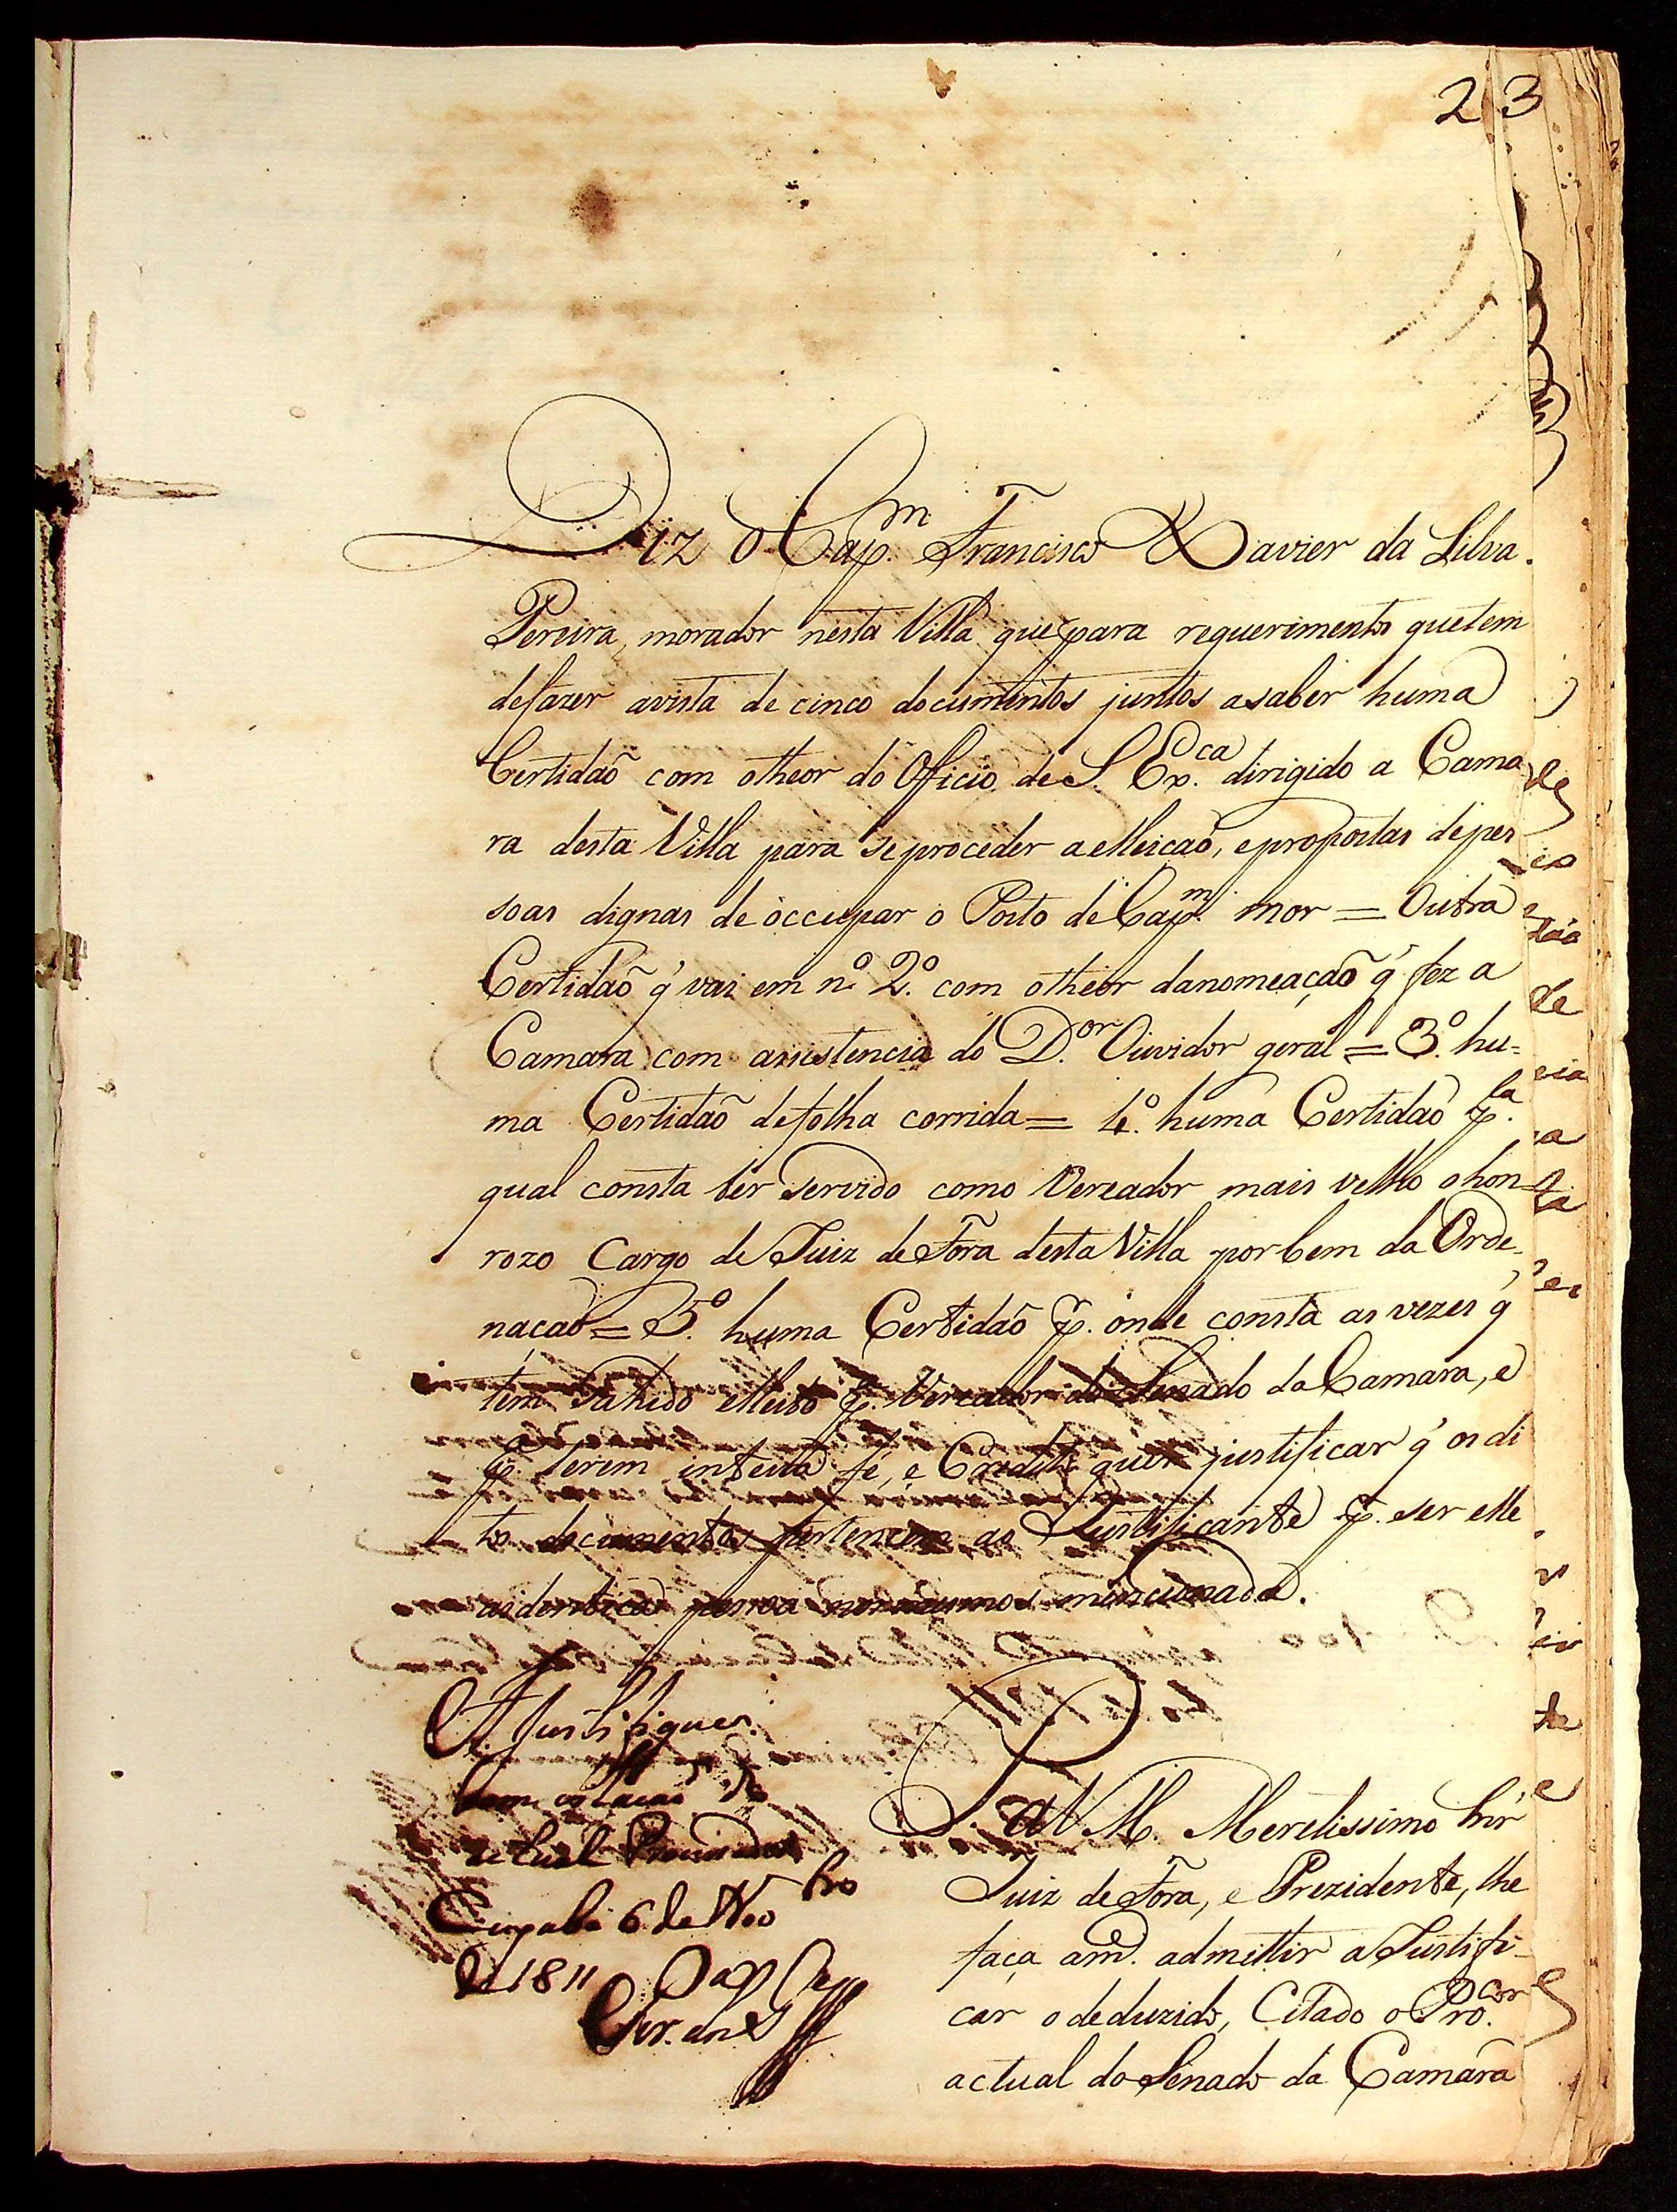 23
Diz o Cap.m Francisco Xavier da Silva
Pereira, morador nesta Villa que para requerimentos quetem
defazer avista de cinco documentos juntos asaber huma
Certidaõ com otheor do Officio de S. Ex.ca dirigido a Cama
ra desta Villa para seproceder aelleicaõ, epropostas depes
soas dignas de occupar o Posto de Cap.m mor = Outra
Certidaõ q' vai em n.o 2.o com otheor danomeaçaõ q' fez a
Camara com assistencia do D.or Ouvidor geral = 3.o hu=
ma Certidaõ defolha corrida = 4.o huma Certidaõ p.la
qual consta ter servido como Vereador mais velho ohon=
rozo Cargo de Juiz de Fora desta Villa porbem da Orde
nacaõ = 5.o huma Certidaõ p. onde consta as vezes q'
tem sahido elleito p. Vereador do Senado da Camara, e
p. terem inteira fé, e Credito quer justificar q' os di
tos documentos pertencem ao Justificante p. ser elle
aidentica pessoa mencionada.
P. a V M. Meretissimo Snr'
Juiz de Fora, e Prezidente, lhe
faça a m.ce admittir a Justifi-
car o deduzido, Citado o Pro.cor
actual do Senado da Camara
Justifique
Com citacaõ do
actual Procurador
Cuyabá 6 de Nov.bro
de 1811